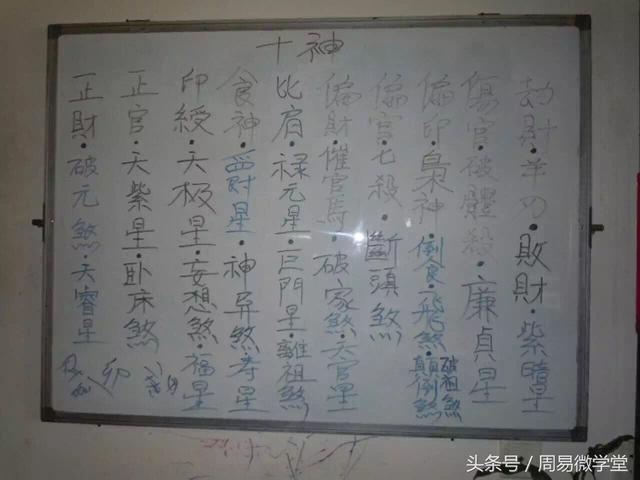 十神
劫財·羊刃·敗財·紫暗星
傷官·破體殺·廉貞星
偏印·梟神·倒食·飛煞·顛倒煞 破祖煞
偏官·七殺·斷頭煞
偏財·催官馬·破家煞·天官星
比肩·禄元星·巨門星·離祖煞
食神·爵星·神异煞·寿星
印綬·天极星·妄想煞·福星
正官·天紫星·卧床煞
正財·破元煞·天睿星
卯
头条号/周易微学堂